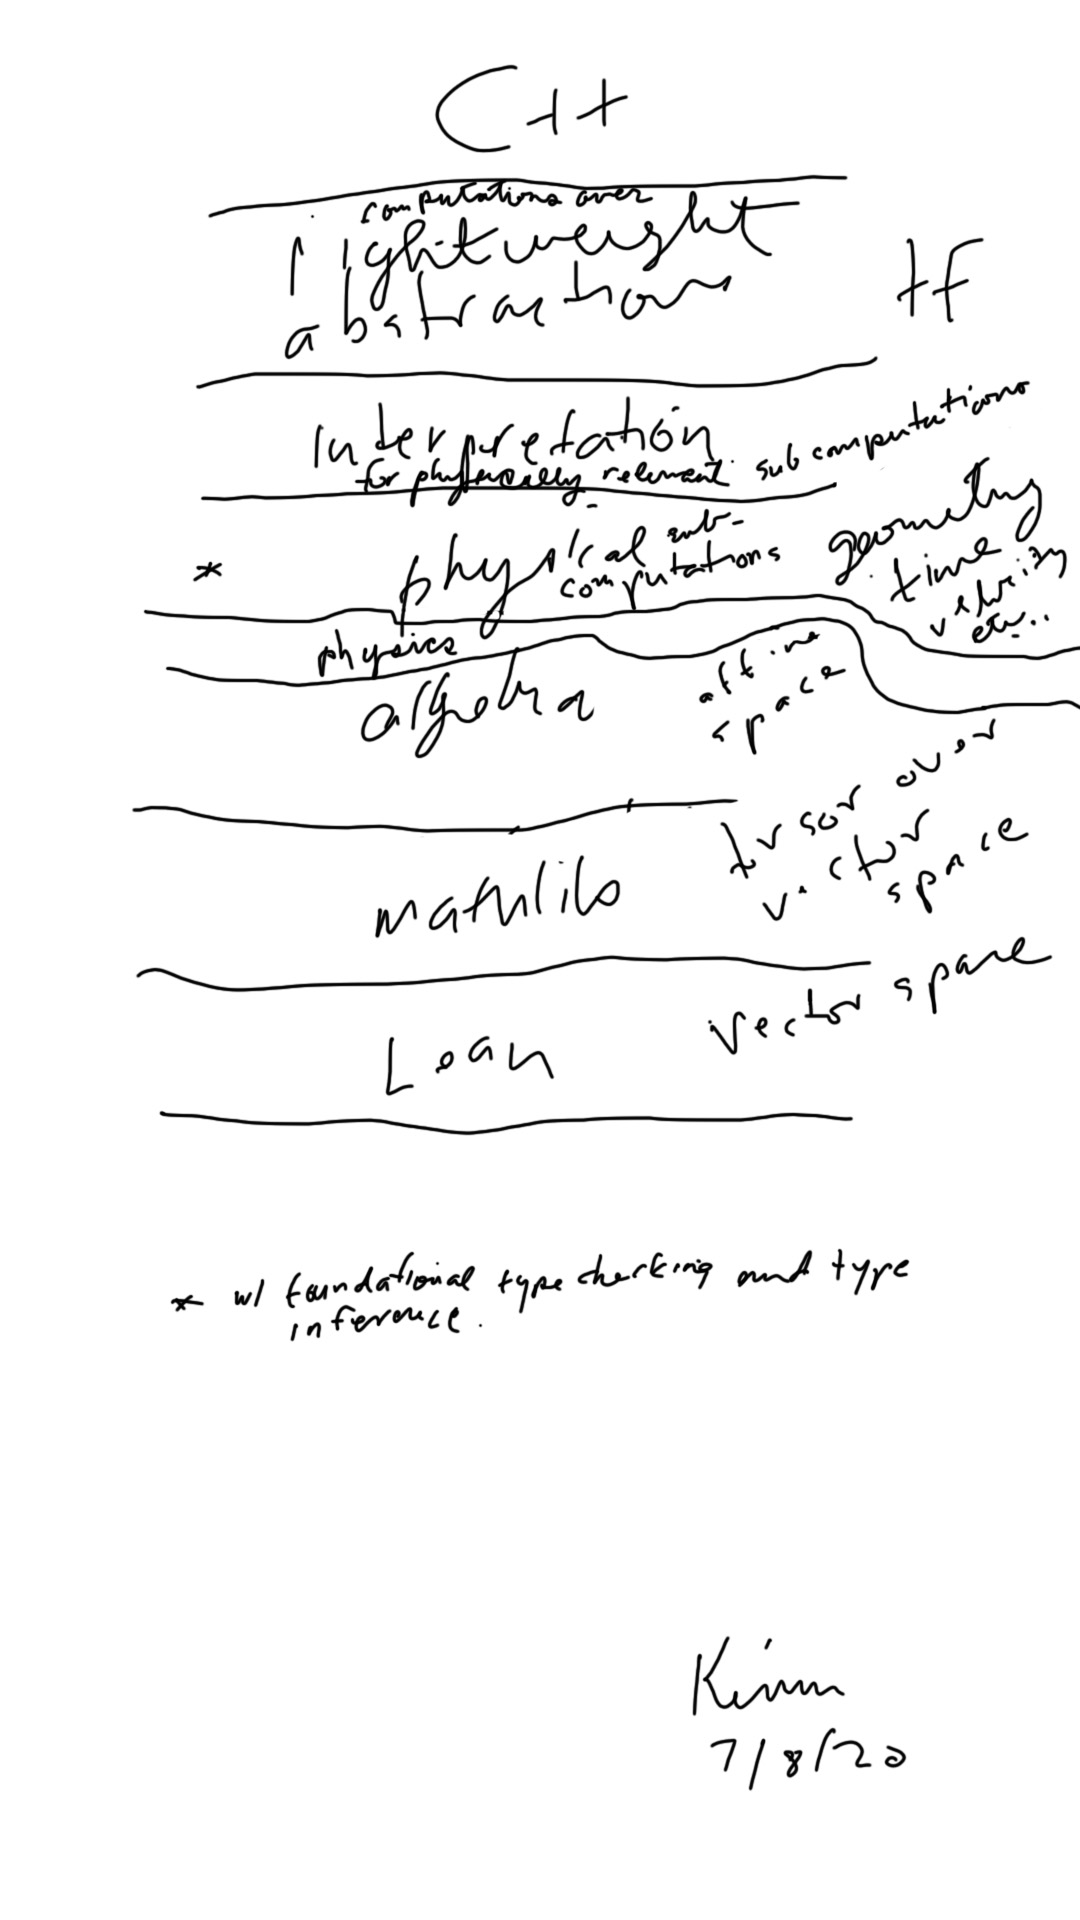 C++
computations over
lightweight
abstractions
tf
Interpretation
for physically relevant sub computations
* physical sub-
computations
geometry
time
velocity
etc..
physics
algebra
affine
space
torsor over
vector
space
mathlib
vector space
Lean
* w/ foundational type checking and type
inference.
Kevin
7/8/20